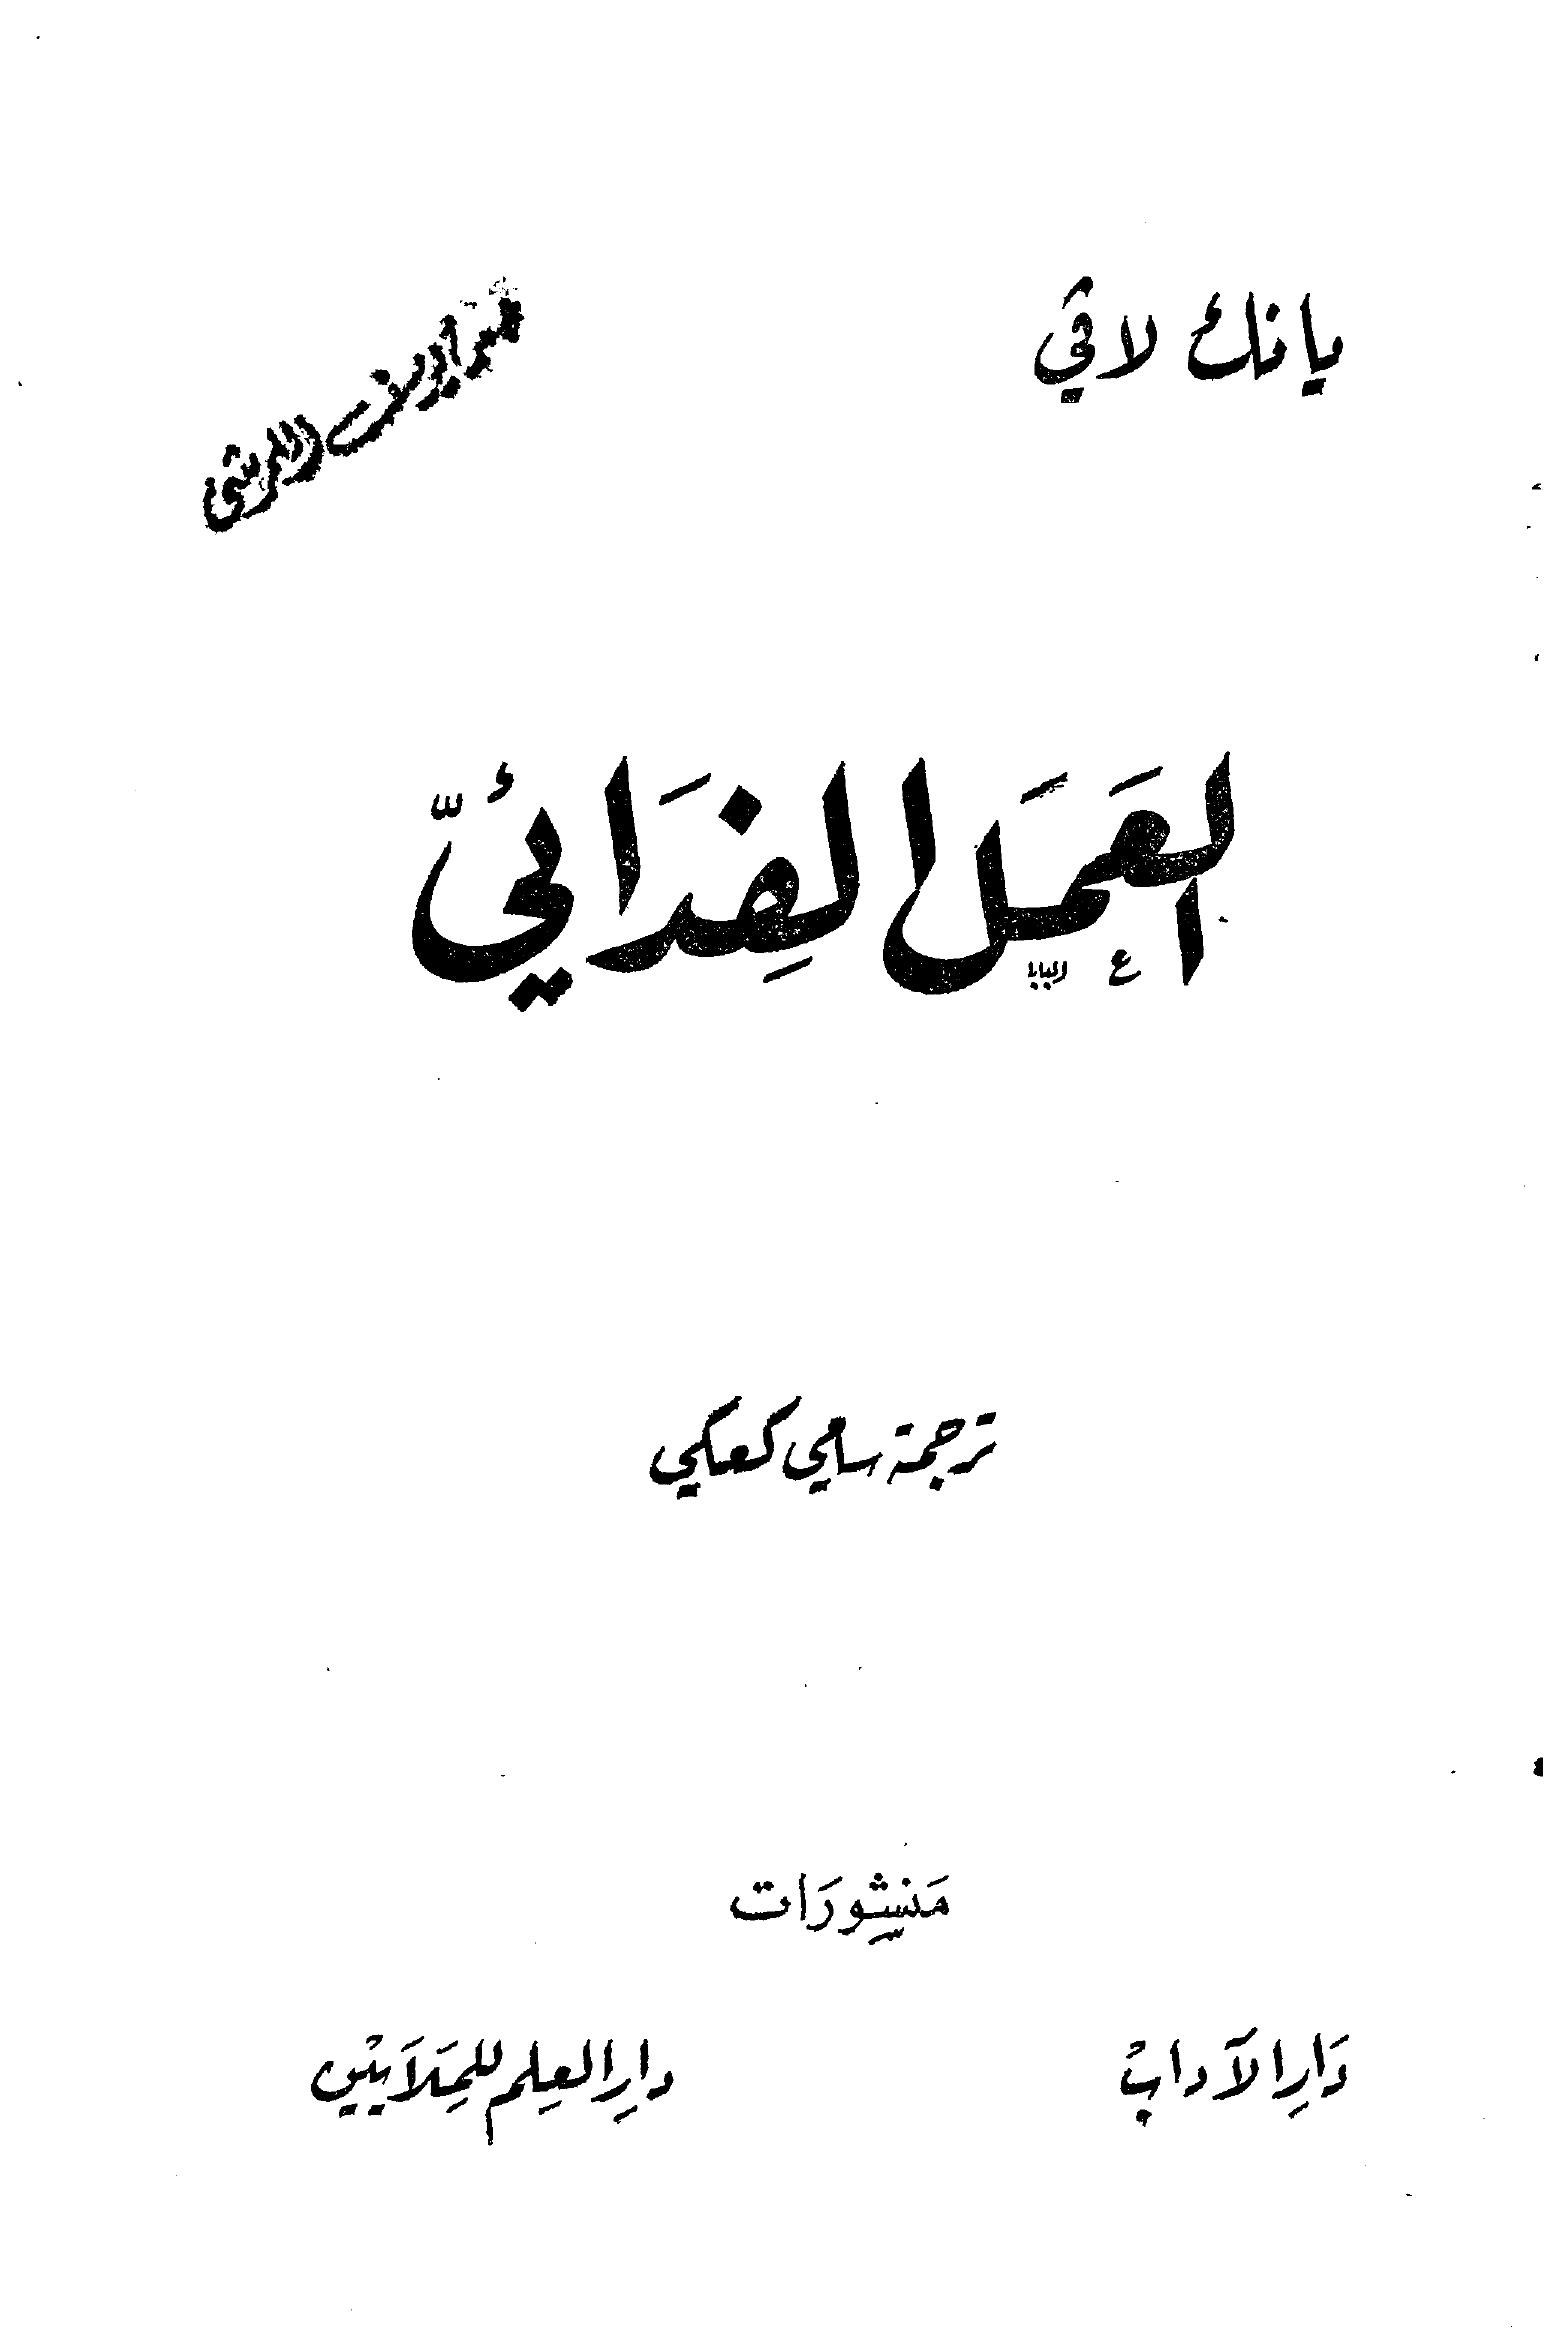 يانك لاقي
العَمَل الفِدَائيّ
ع البابا
ترجمة سامي كعكي
مَنشورَات
دَار الآداب
دار العِلم للمِلَايين